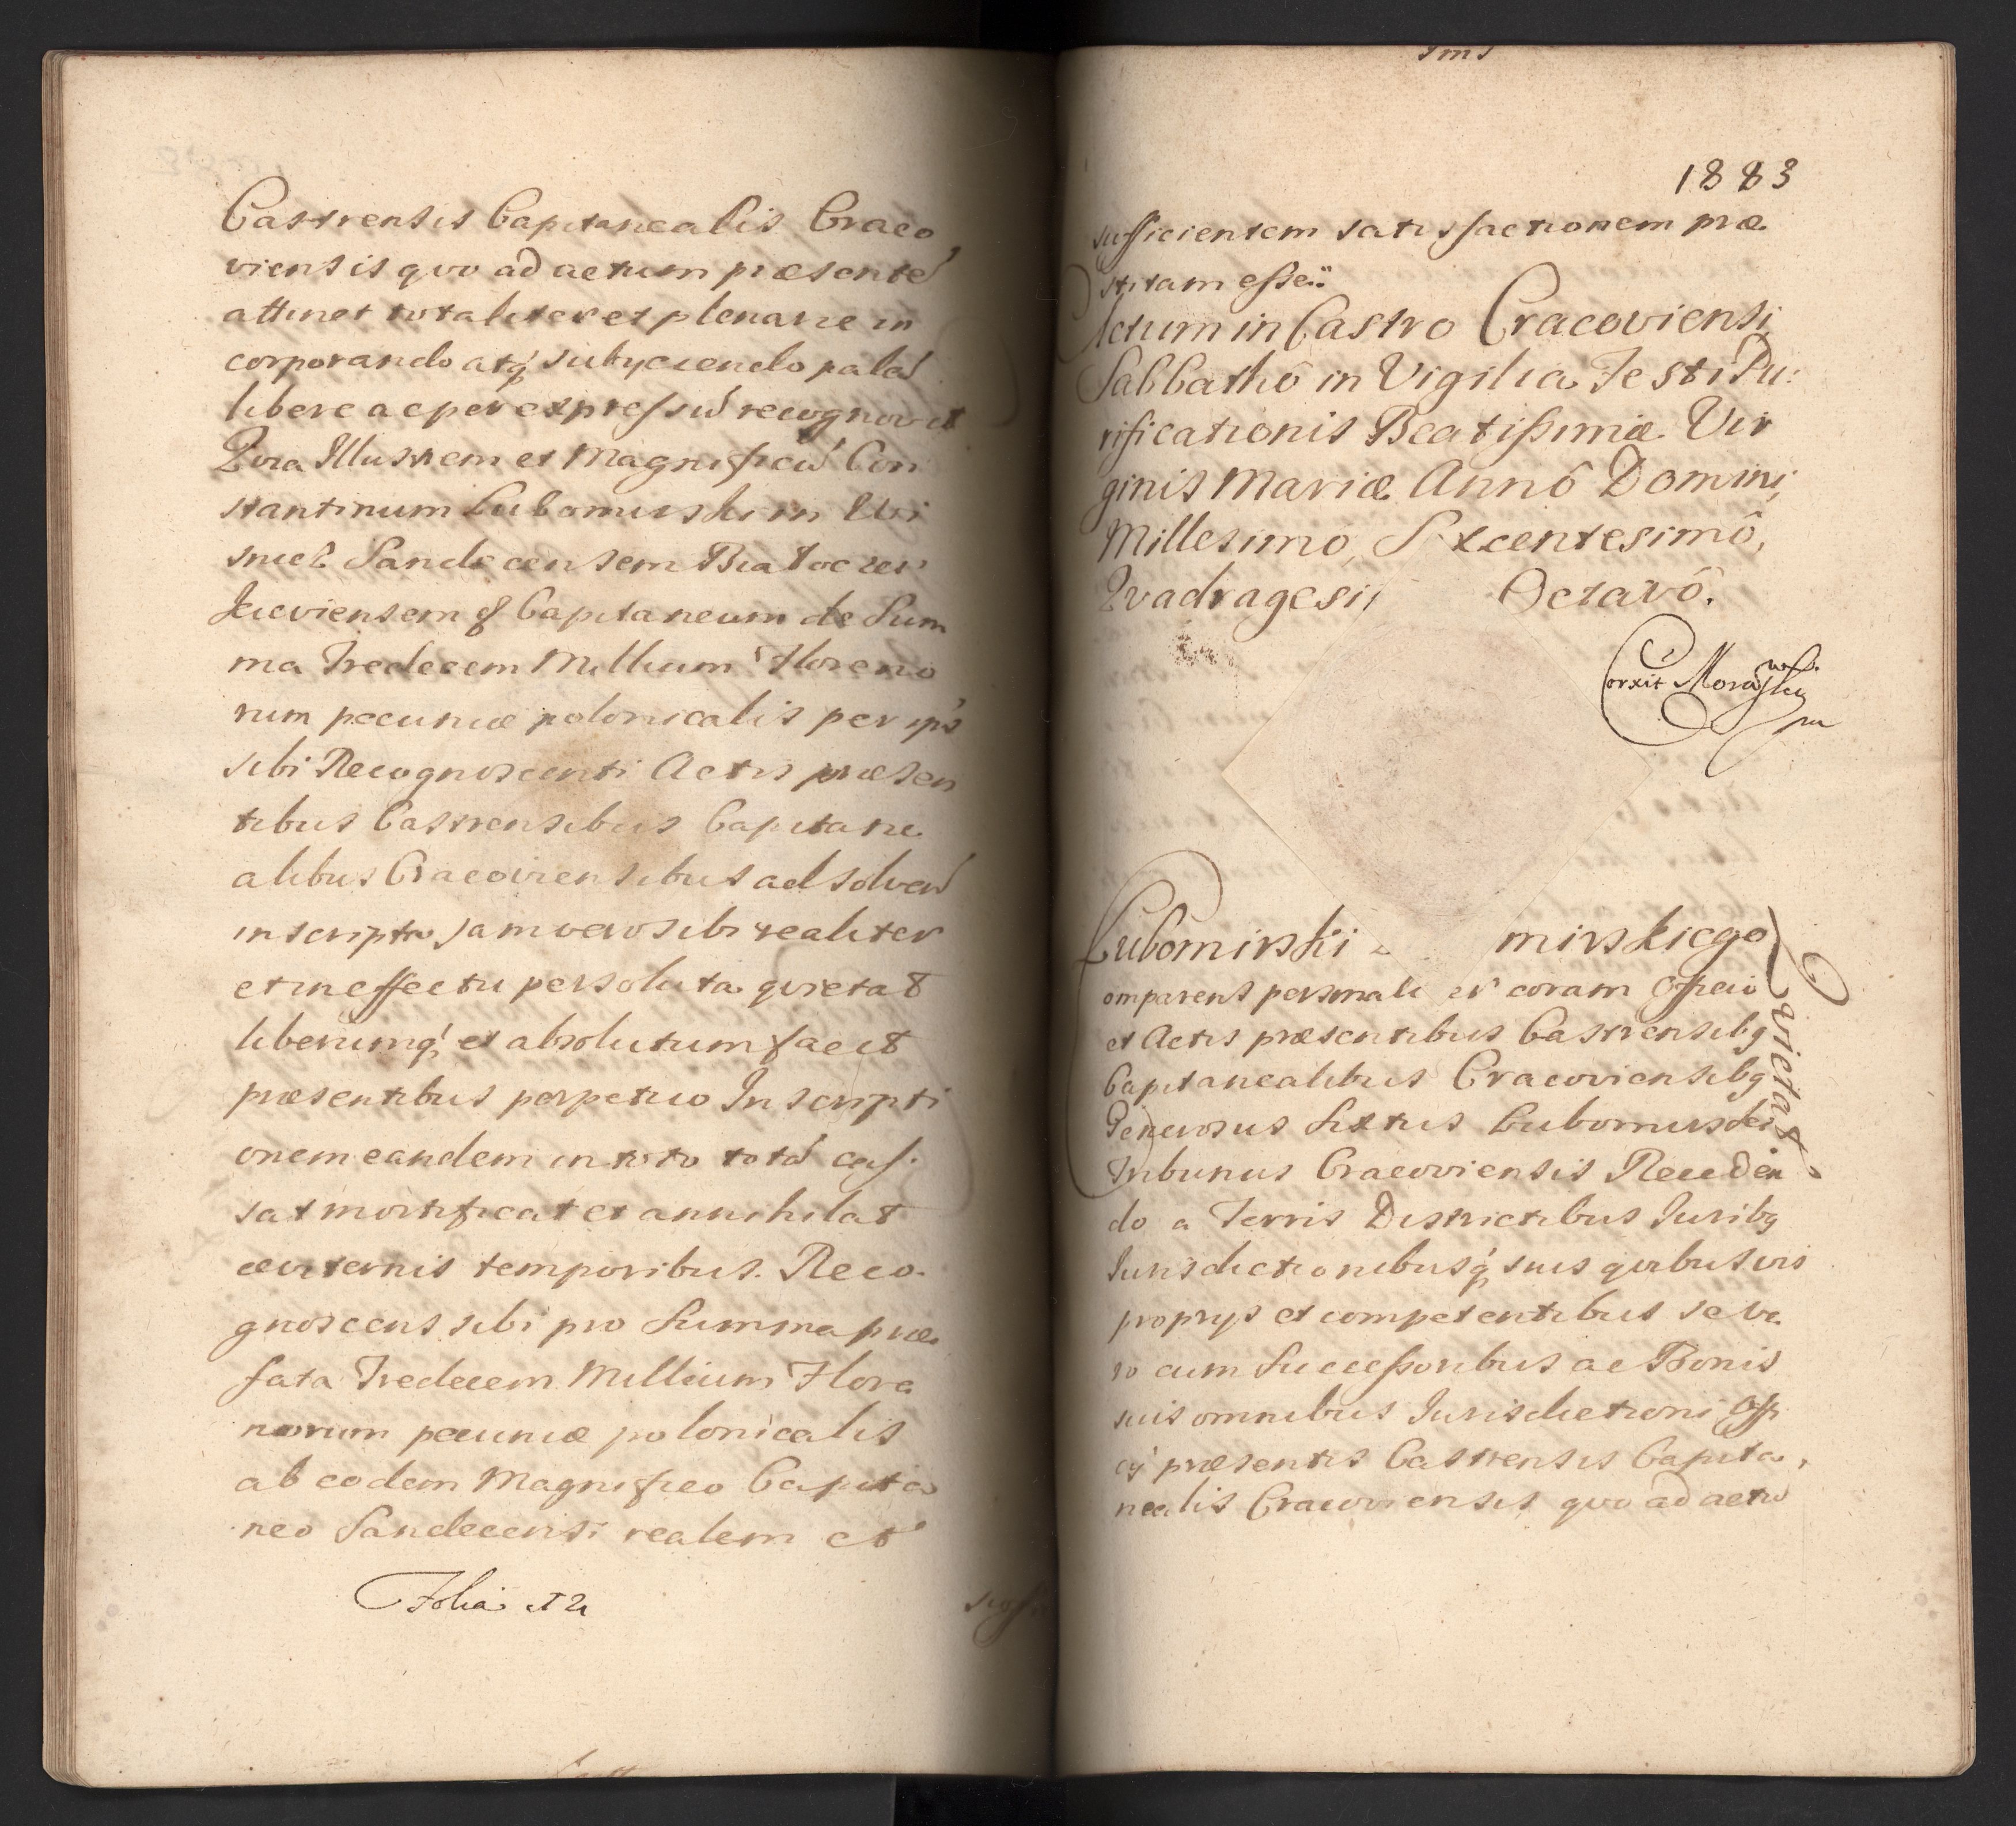 Castrensis Capitanealis Craco
viensis qvo ad actum præsente
attinet totaliter et plenarie in
corporando atq subyciendo pala
libere ac per expressu recognovit
Qvia Illustrem et Magnificu Con
stantinum Lubomirski in Wi
snicz Sandecensem Białocer
kieviensem & Capitaneum de Sum
ma Tredecem Millium Floreno
rum pecuniæ polonicalis per ips
sibi Recognoscenti Actis præsen
tibus Castrensibus Capitane
alibus Cracoviensibus ad solven
inscripta jam vero sibi realiter
et in effectu persoluta qvietat
liberumq et absolutum facit
præsentibus perpetuo Inscripti
onem eandem in toto tota cas
sat mortificat et annihilat
æviternis temporibus. Reco
gnoscens sibi pro Summa præ
fata Tredecem Millium Flore
norum pecuniæ polonicalis
ab eodem Magnifico Capita
neo Sandecensi realem et
Folia
1883
sufficientem satisfactionem præ
stitam esse
Actum in Castro Cracoviensi
Sabbathô in Vigilia Festi Pu:
rificationis Beatissimæ Vir
ginis Mariæ Annô Domini
Millesimo Sexcentesimô,
Qvadragesi Octavô.
Corxit Morawski
Lubomirski mirskiego
Qvietat
omparens personali er coram Officio
et Actis præsentibus Castrensibq
Capitanealibus Cracoviensibq
Generosus Sixtus Lubomirski
Tribunus Cracoviensis Receden
do a Terris Districtibus Juribq
Jurisdictionibusq suis qvibusvis
proprys et competentibus se ve
ro cum Successoribus ac Bonis
suis omnibus Jurisdictioni Offi
cy præsentis Castrensis Capita
nealis Cracoviensis qvo ad actu